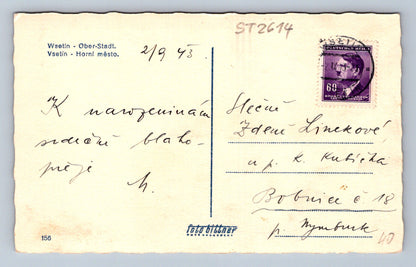 ST2614
Wsetin - Ober-Stadt.
Vsetín - Horní město.
2/9 43.
K narozeninám
srdečně blaho-
přeje
M.
Slečně
Zdeně Linekové
u p. K. Kubíčka
Bobnice č 18
p. Nymburk
60
40
foto bittner
156